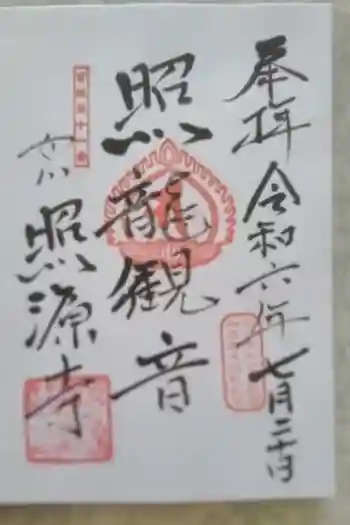 奉拝 令和六年七月二十日
照龍観音
照源寺